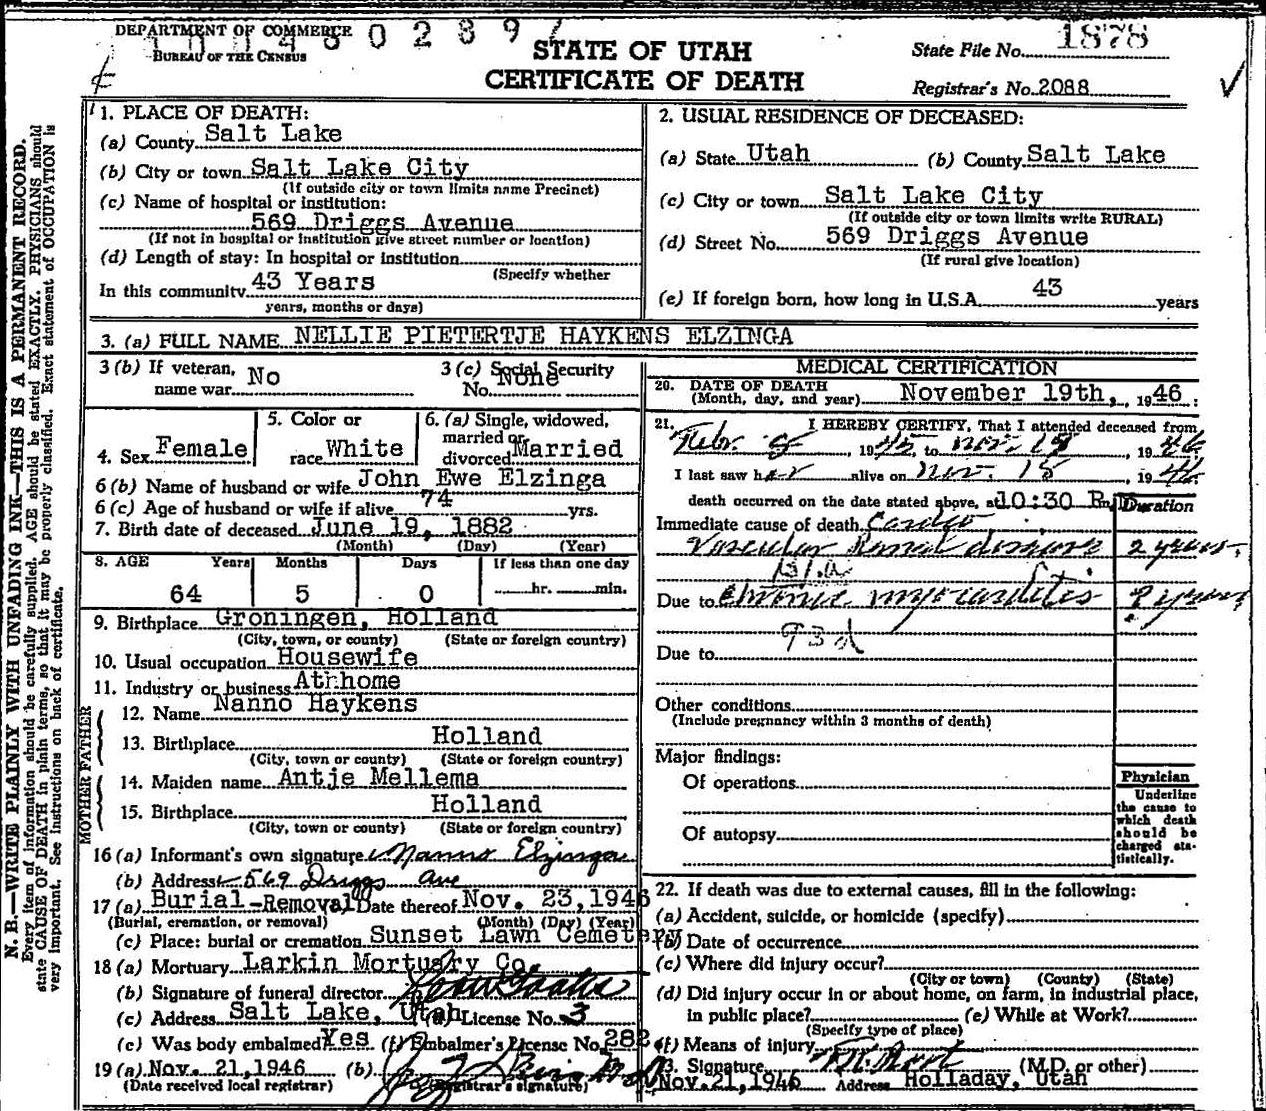 DEPARTMENT OF COMMERCE
BUREAU OF THE CENSUS
STATE OF UTAH
CERTIFICATE OF DEATH
State File No. 1878
Registrar's No. 2088
N. B.—WRITE PLAINLY WITH UNFADING INK—THIS IS A PERMANENT RECORD.
Every item of information should be carefully supplied. AGE should be stated EXACTLY. PHYSICIANS should
state CAUSE OF DEATH in plain terms, so that it may be properly classified. Exact statement of OCCUPATION is
very important. See instructions on back of certificate.
1. PLACE OF DEATH:
(a) County Salt Lake
(b) City or town Salt Lake City
(If outside city or town limits name Precinct)
(c) Name of hospital or institution:
569 Driggs Avenue
(If not in hospital or institution give street number or location)
(d) Length of stay: In hospital or institution
(Specify whether
In this community 43 Years
years, months or days)
2. USUAL RESIDENCE OF DECEASED:
(a) State Utah (b) County Salt Lake
(c) City or town Salt Lake City
(If outside city or town limits write RURAL)
(d) Street No. 569 Driggs Avenue
(If rural give location)
(e) If foreign born, how long in U.S.A. 43 years
3. (a) FULL NAME NELLIE PIETERTJE HAYKENS ELZINGA
3 (b) If veteran, name war No
3 (c) Social Security No. None
4. Sex Female
5. Color or race White
6. (a) Single, widowed, married or divorced Married
6 (b) Name of husband or wife John Ewe Elzinga
6 (c) Age of husband or wife if alive 74 yrs.
7. Birth date of deceased June 19, 1882
(Month) (Day) (Year)
8. AGE Years Months Days If less than one day
64 5 0 hr. min.
9. Birthplace Groningen, Holland
(City, town, or county) (State or foreign country)
10. Usual occupation Housewife
11. Industry or business At home
FATHER
12. Name Nanno Haykens
13. Birthplace Holland
(City, town or county) (State or foreign country)
MOTHER
14. Maiden name Antje Mellema
15. Birthplace Holland
(City, town or county) (State or foreign country)
16 (a) Informant's own signature Nanno Elzinga
(b) Address 569 Driggs Ave
17 (a) Burial-Removal Date thereof Nov. 23, 1946
(Burial, cremation, or removal) (Month) (Day) (Year)
(c) Place: burial or cremation Sunset Lawn Cemetery
18 (a) Mortuary Larkin Mortuary Co
(b) Signature of funeral director
(c) Address Salt Lake, Utah (d) License No. 3
(e) Was body embalmed Yes (f) Embalmer's License No. 282
19 (a) Nov. 21, 1946 (b)
(Date received local registrar) (Registrar's signature)
MEDICAL CERTIFICATION
20. DATE OF DEATH
(Month, day, and year) November 19th, 1946
21. I HEREBY CERTIFY, That I attended deceased from
Febr. 1945, to Nov. 19 1946
I last saw her alive on Nov. 15, 1946
death occurred on the date stated above, at 10:30 P m. Duration
Immediate cause of death Cardio
Vascular Renal disease 2 years.
131a
Due to Chronic myocarditis 2 years
93d
Due to
Other conditions
(Include pregnancy within 3 months of death)
Major findings:
Of operations
Of autopsy
Physician
Underline
the cause to
which death
should be
charged sta-
tistically.
22. If death was due to external causes, fill in the following:
(a) Accident, suicide, or homicide (specify)
(b) Date of occurrence
(c) Where did injury occur?
(City or town) (County) (State)
(d) Did injury occur in or about home, on farm, in industrial place,
in public place? (e) While at Work?
(Specify type of place)
(f) Means of injury
23. Signature (M.D. or other)
Nov. 21, 1946 Address Holladay, Utah